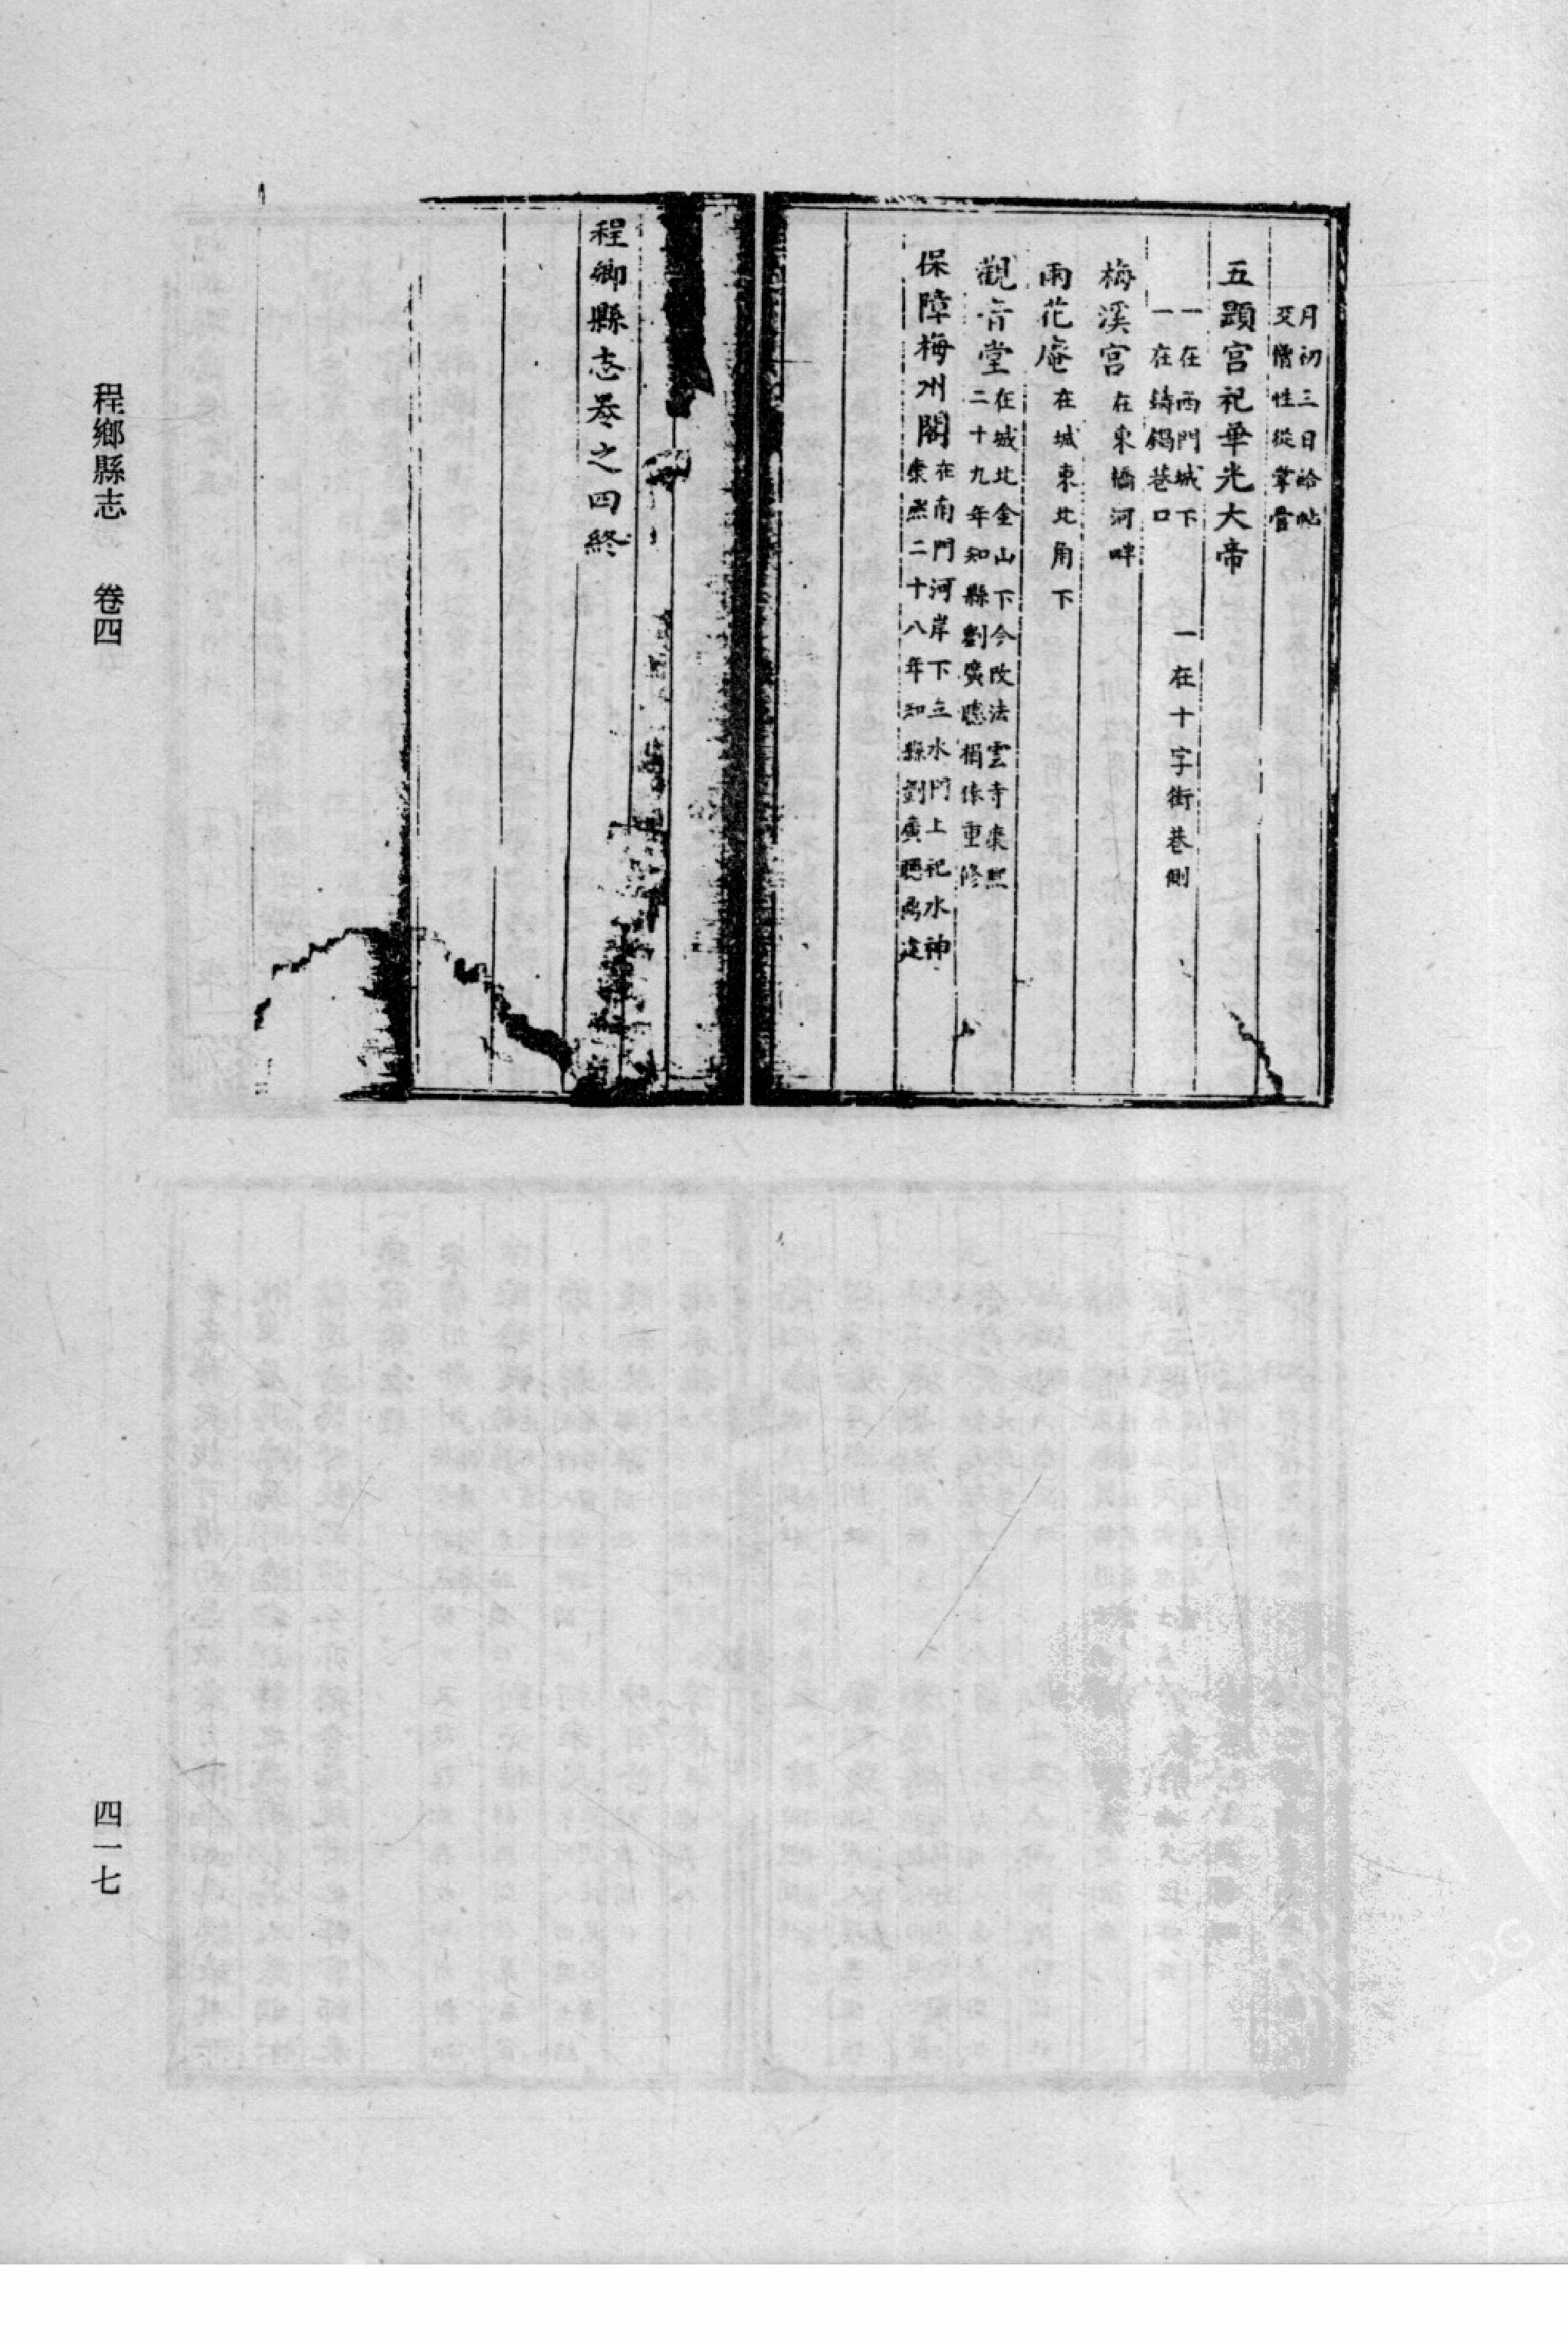 月初三日給帖
交僧性從掌管
五顯宮祀華光大帝
一在西門城下
一在鑄鍋巷口
一在十字街巷側
梅溪宮在東橋河畔
雨花庵在城東北角下
觀音堂在城北金山下今改法雲寺康熙
二十九年知縣劉廣聰捐俸重修
保障梅州閣在南門河岸下立水門上祀水神
康熙二十八年知縣劉廣聰鼎建
程鄉縣志卷之四終
程鄉縣志 卷四
四一七